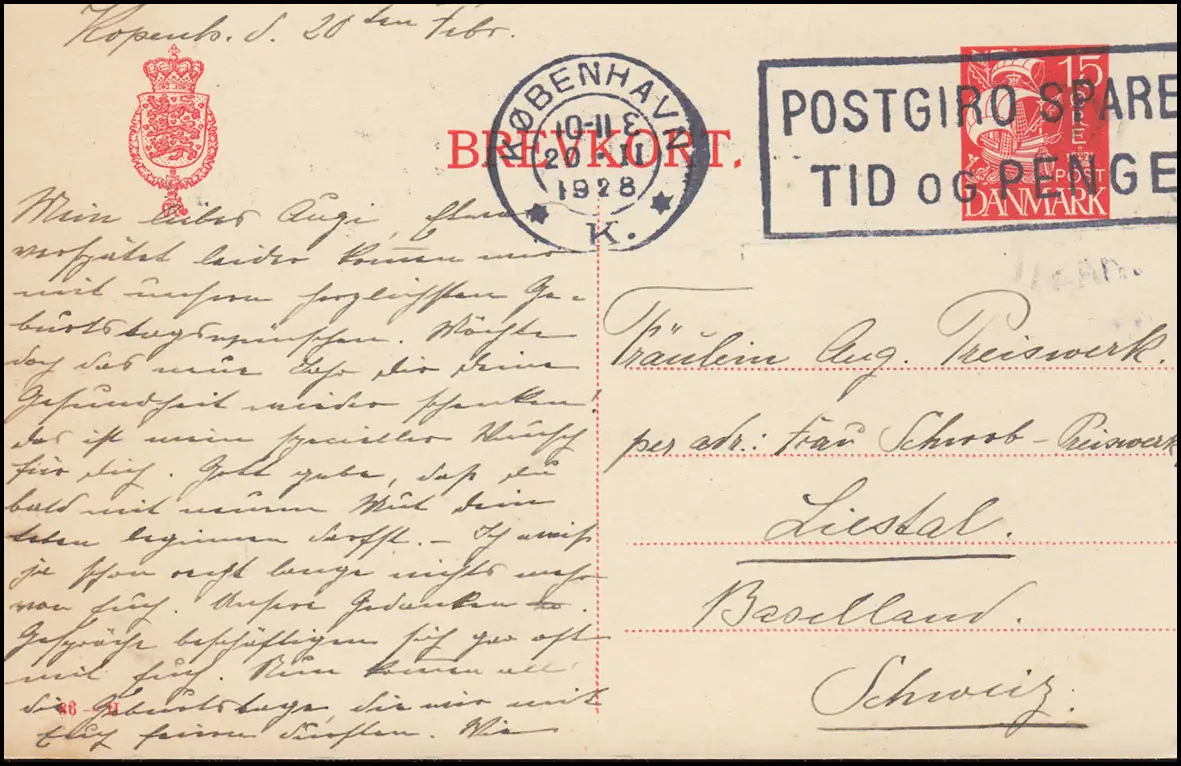 Kopenh. d. 20ten Febr.
KØBENHAVN
10-11 E
20 · II
1928
K.
BREVKORT.
POSTGIRO SPARE
TID OG PENGE
15
ØRE
POST
DANMARK
Mein liebes Auge Etwas
verspätet leider kommen wir
mit unsern herzlichsten Ge-
burtstagswünschen. Möchte
doch das neue Jahr dir deine
Gesundheit wieder schenken!
das ist mein specieller Wunsch
für dich. Gott gebe, daß du
bald mit neuem Mut dein
leben beginnen darfst. – Ich weiß
ja schon recht lange nichts mehr
von Euch. Unsere Gedanken
Gespräche beschäftigen sich gar oft
mit Euch. Nun kommen all
die Geburtstage die wir mit
Euch feiern durften. Wie
Fräulein Aug. Preiswerk.
per adr: Frau Schwob-Preiswerk
Liestal.
Baselland.
Schweiz.